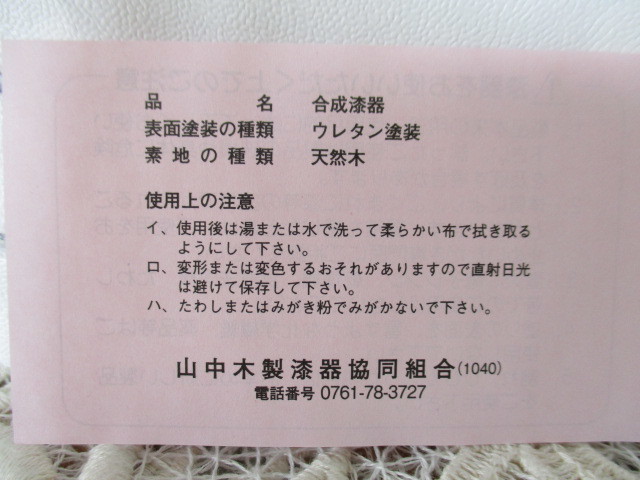 品名 合成漆器
表面塗装の種類 ウレタン塗装
素地の種類 天然木
使用上の注意
イ、使用後は湯または水で洗って柔らかい布で拭き取る
ようにして下さい。
ロ、変形または変色するおそれがありますので直射日光
は避けて保存して下さい。
ハ、たわしまたはみがき粉でみがかないで下さい。
山中木製漆器協同組合(1040)
電話番号 0761-78-3727